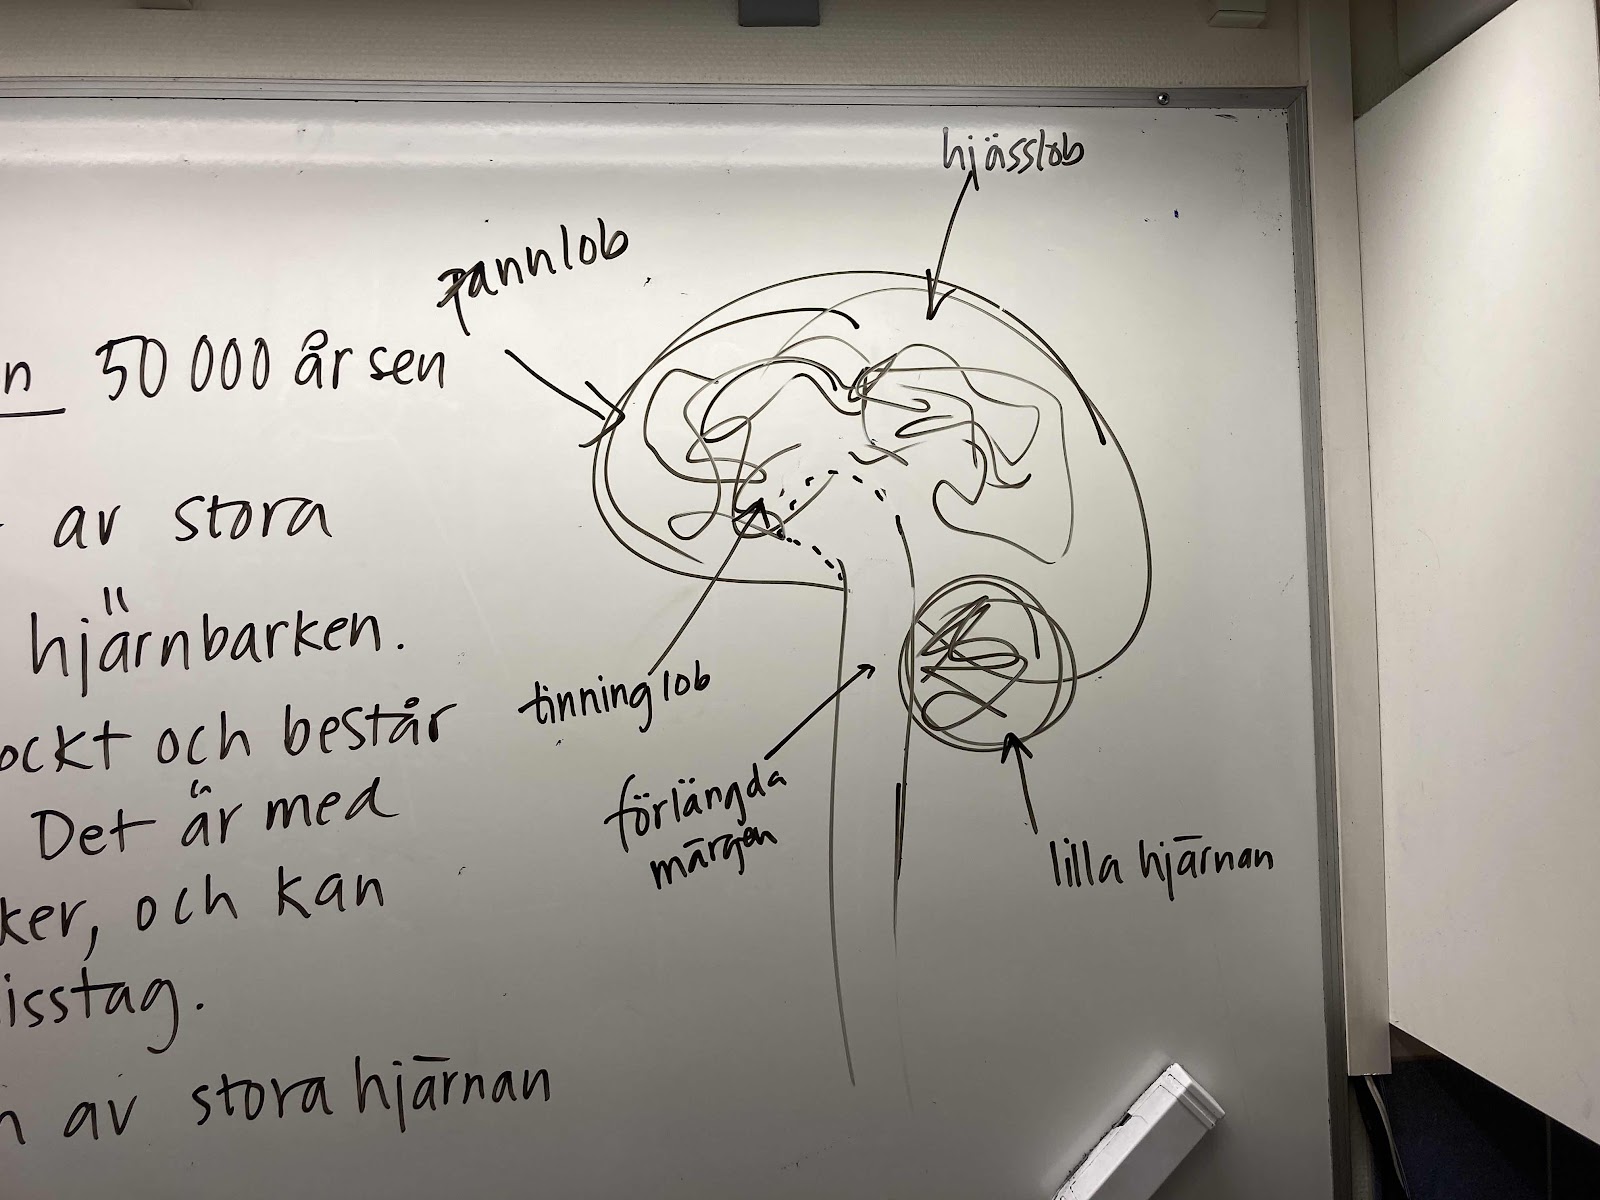 n 50 000 år sen
av stora
hjärnbarken.
ockt och består
Det är med
ker, och kan
isstag.
n av stora hjärnan
hjässlob
pannlob
tinninglob
förlängda
märgen
lilla hjärnan